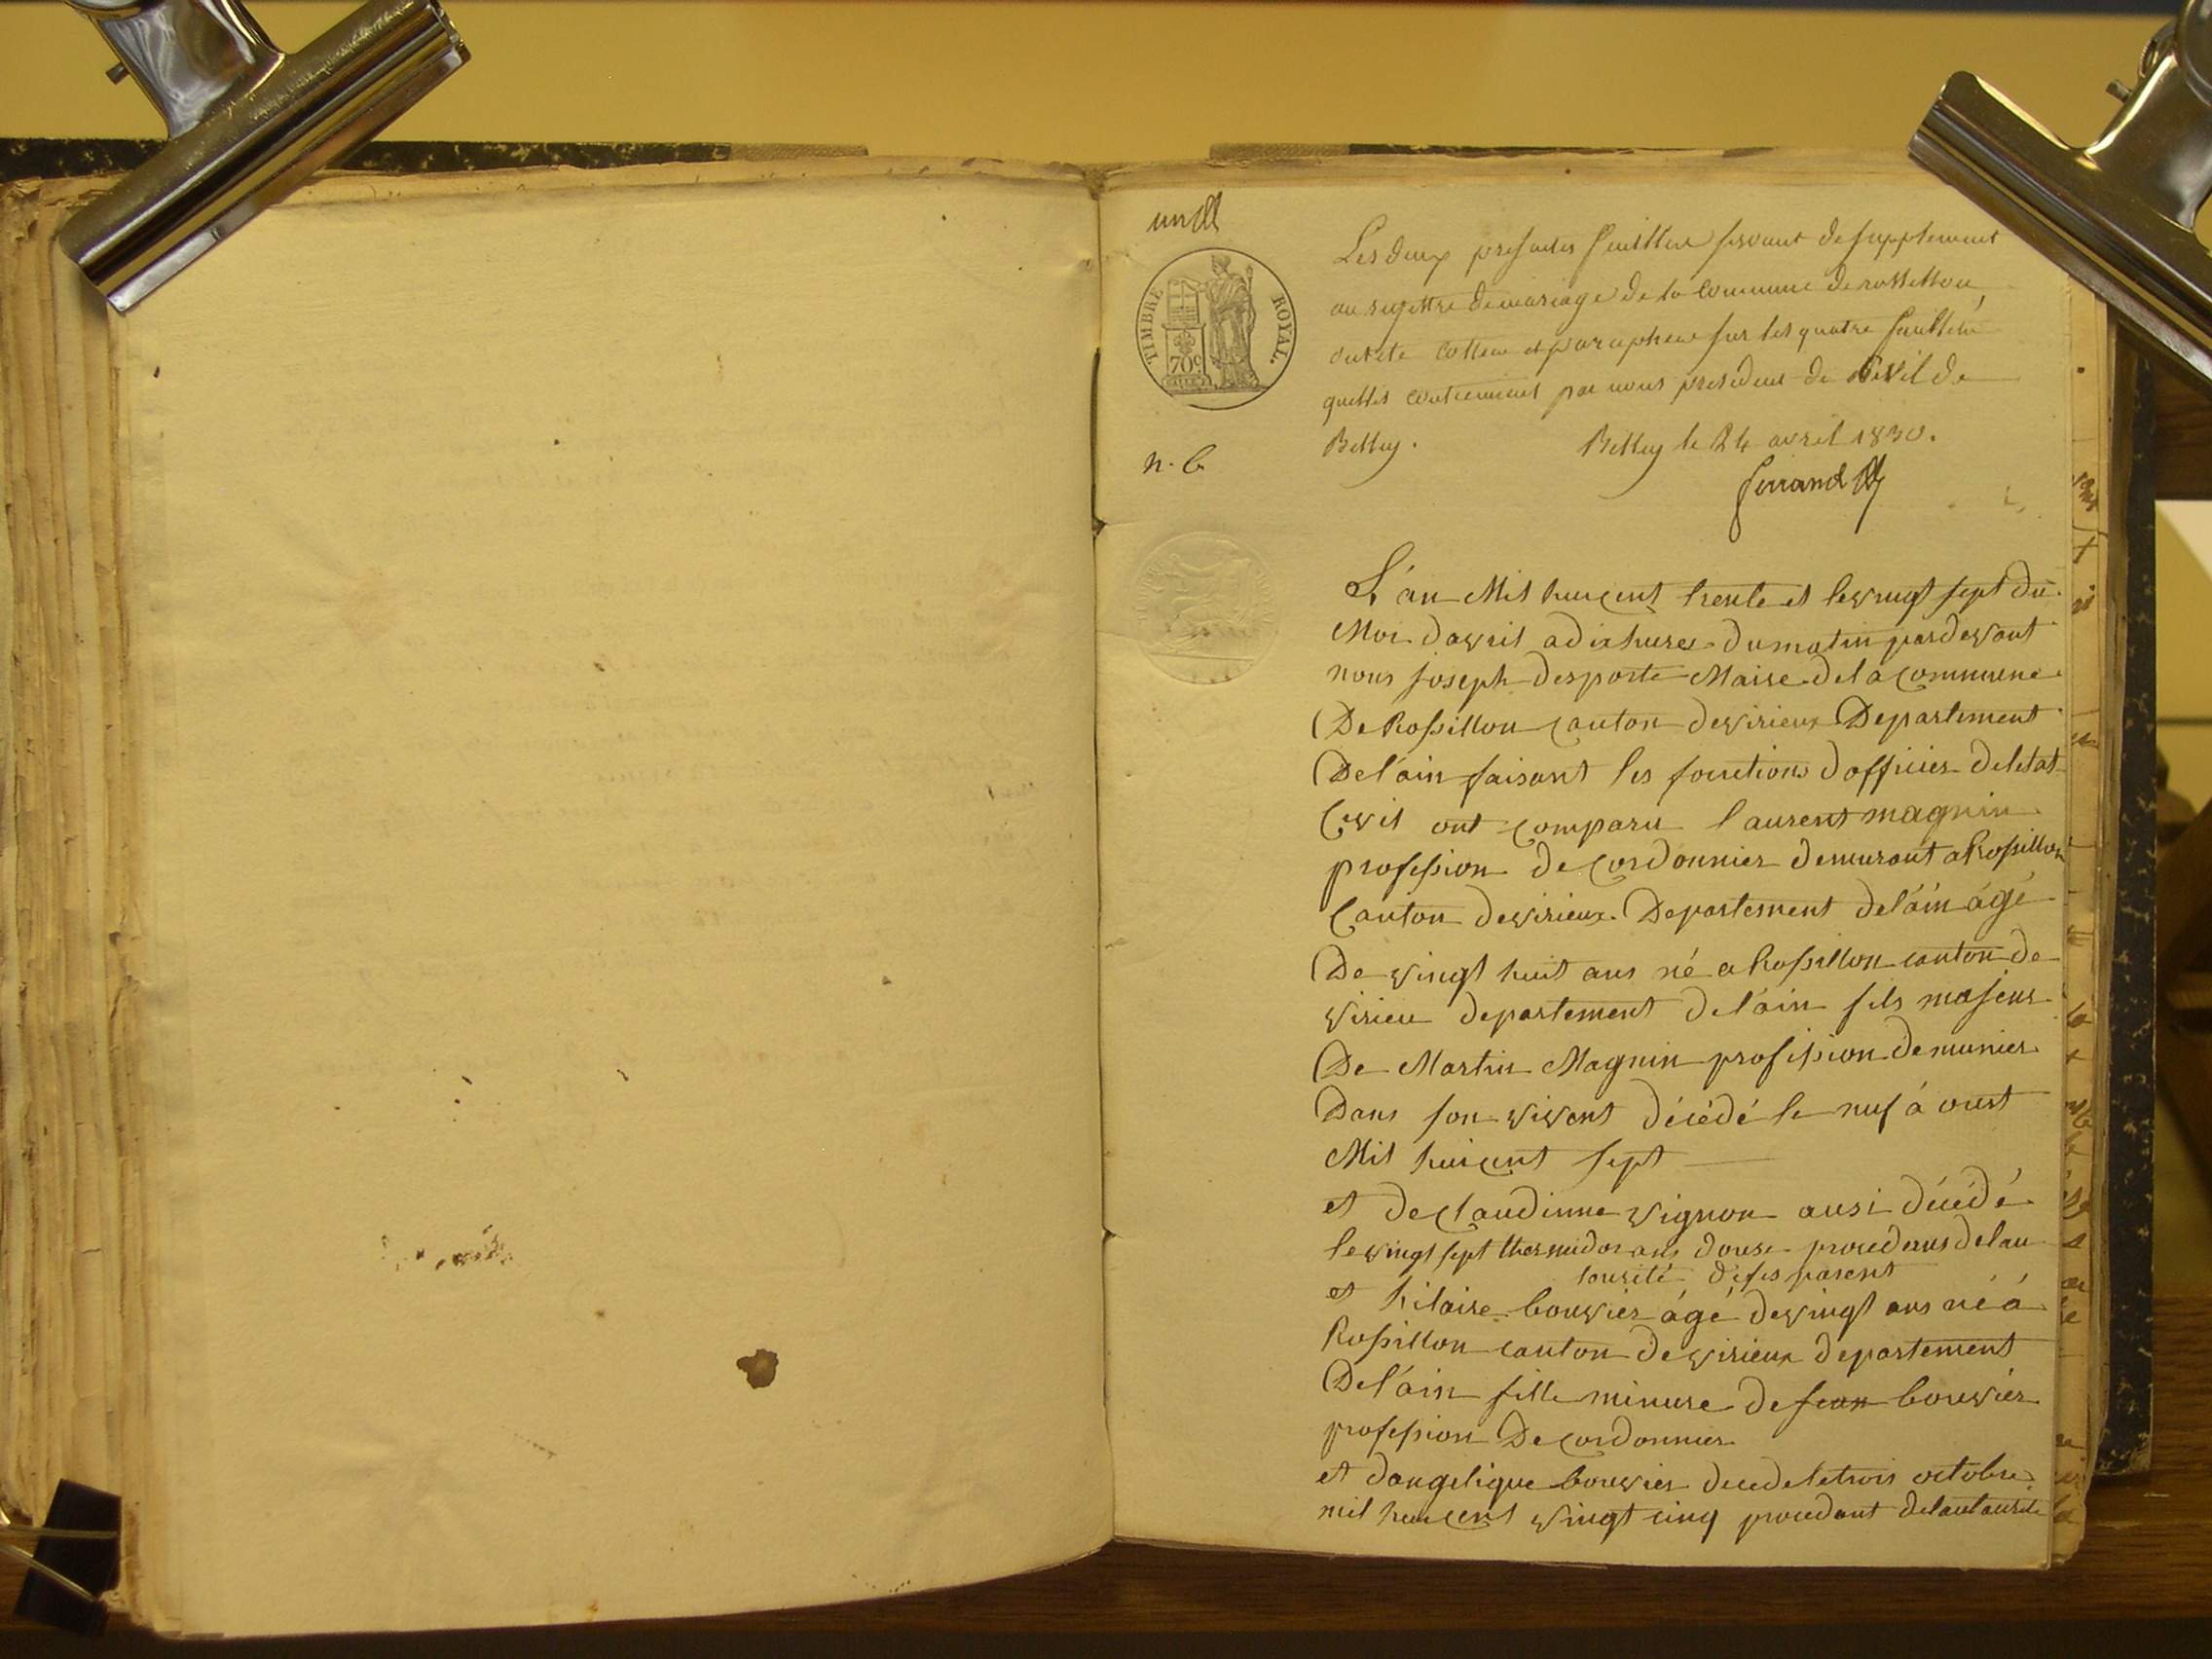 un
TIMBRE ROYAL.
70c
n. 6
Les deux presentes feuilles servant de supplement
au regittre de mariage de la commune de rossillon
ont ete cottees et paraphees sur les quatre feuillets
quelles contiennent par nous president de Civil de
Belley. Belley le 24 avril 1830.
ferrand
L'an Mil huicent trente et le vingt sept du
Moi davril a dix hures du matin pardevant
nous Joseph Desporte Maire de la commune
De Rossillon Canton de virieux Departement
De l'ain faisant les fonctions d'officier de letat
Civil ont comparu laurent magnin
profession de Cordonnier demurant a Rossillon
Canton de virieux Departement de l'ain âgé
De vingt huit ans né a Rossillon canton de
virieu departement de l'ain fils majeur
De Martin Magnin profession de munier
Dans son vivant décédé le nuf à oust
Mil huicent sept
et de Claudinne vignon ausi décédé
le vingt sept thermidor ans douse procedans de lau
tourité de ses parent
et hilaire bouvier âgé de vingt ans né á
Rossillon canton de virieux departement
De l'ain fille minure de Jean bouvier
profession De Cordonnier
et dangelique bouvier decede le trois octobre
mil huicent vingt cinq procedant de lautaurité